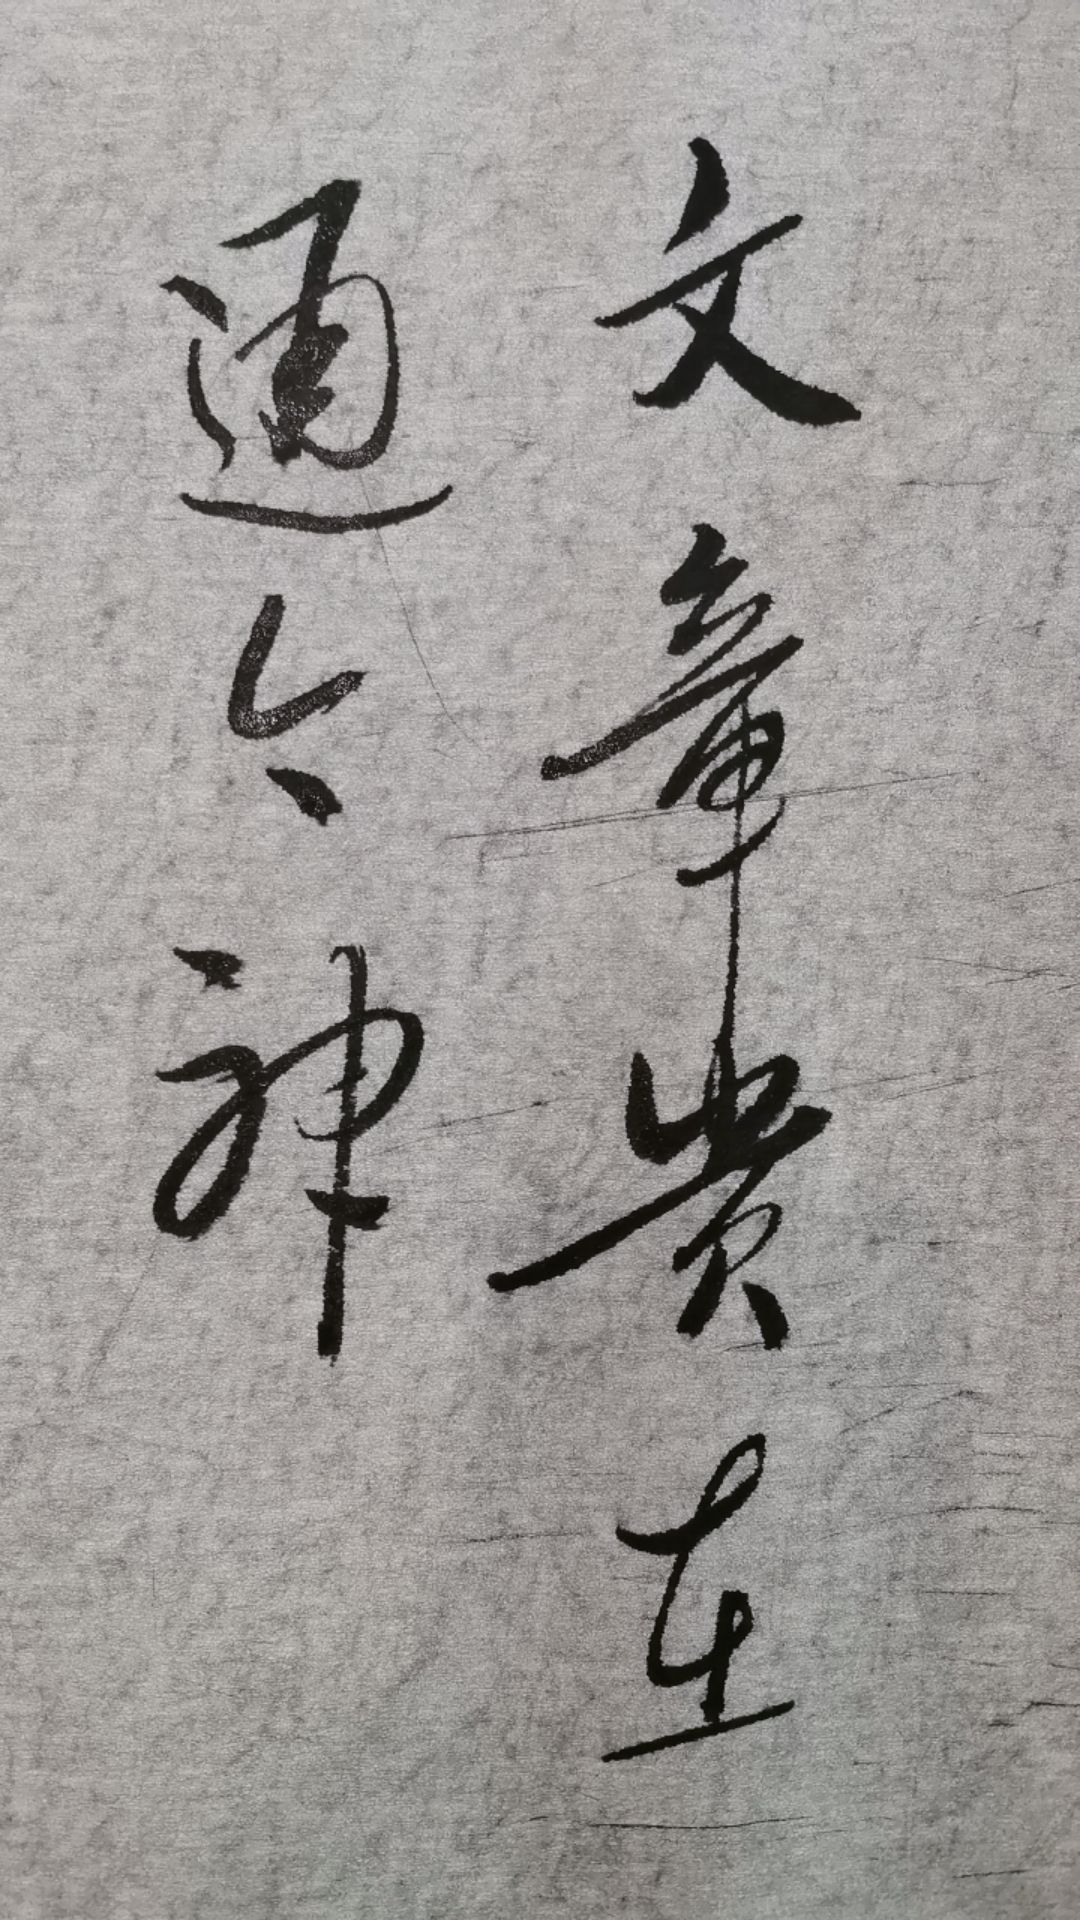 文章贵在
通今神